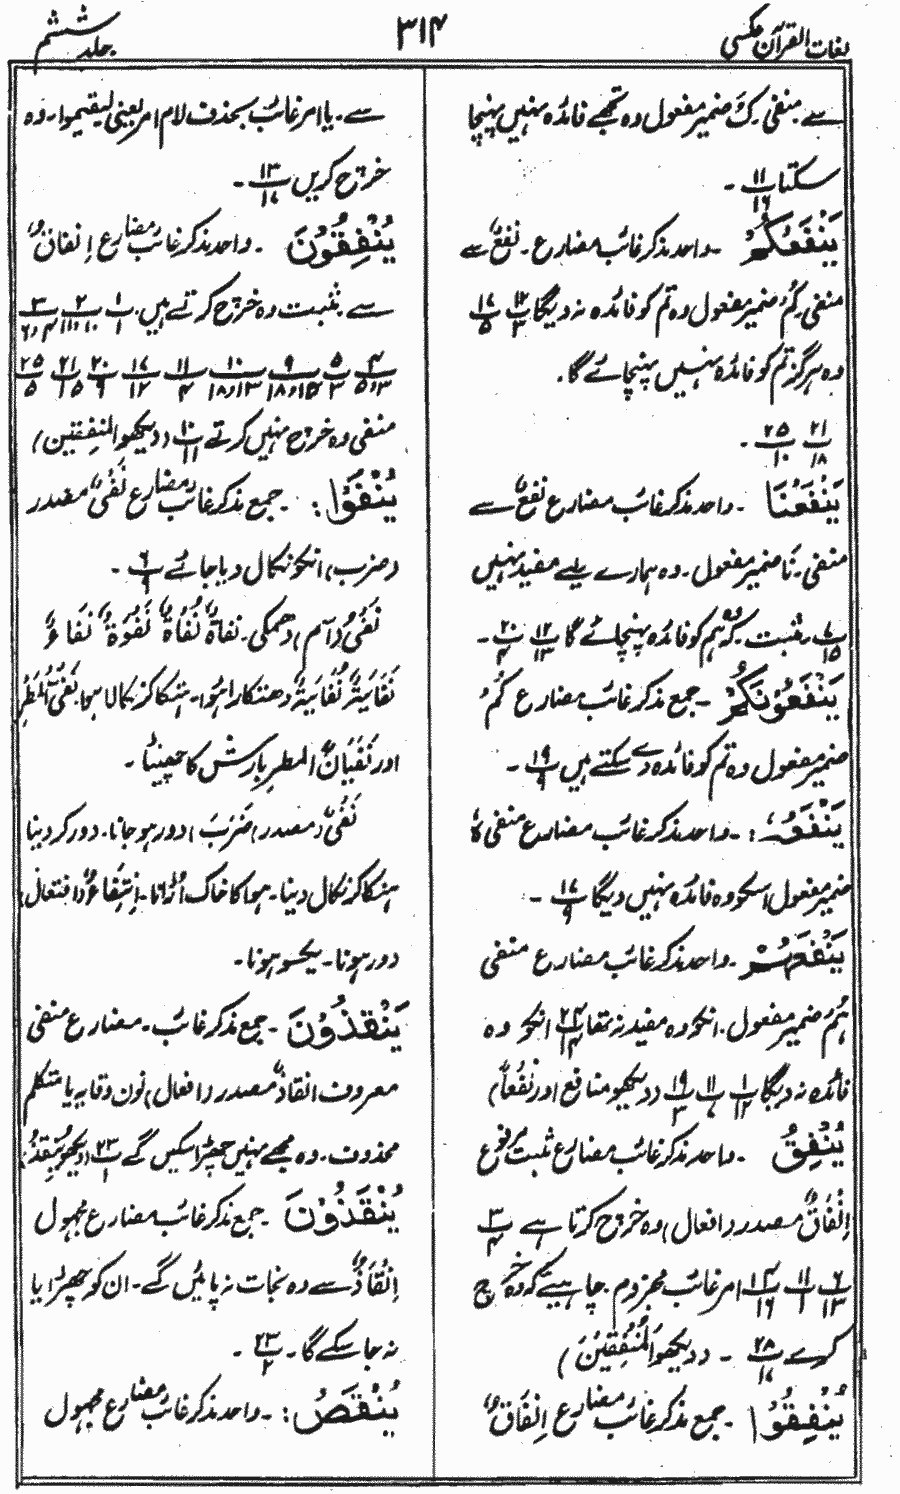 لغات القرآن عکسی
۳۱۴
جلد ششم
سے۔ منفی۔ کَ ضمیر مفعول وہ تجھے فائدہ نہیں پہنچا
سکتا ۱۱/۱۶ ۔
یَنْفَعُکُمْ ۔ واحد مذکر غائب مضارع۔ نَفْعٌ سے
منفی۔ کُمْ ضمیر مفعول وہ تم کو فائدہ نہ دیگا ۱۲/۳ ۱۷/۵
وہ ہرگز تم کو فائدہ نہیں پہنچائے گا۔
۲۱/۱۸ ۲۵/۱۰ ۔
یَنْفَعُنَا ۔ واحد مذکر غائب مضارع نَفْعٌ سے
منفی۔ نَا ضمیر مفعول۔ وہ ہمارے لیے مفید نہیں
۷/۱۵ مثبت۔ کہ وہ ہم کو فائدہ پہنچائے گا ۱۲/۱۳ ۲۰/۴ ۔
یَنْفَعُوْنَکُمْ ۔ جمع مذکر غائب مضارع کُمْ
ضمیر مفعول وہ تم کو فائدہ دے سکتے ہیں ۱۹/۹ ۔
یَنْفَعُہٗ :۔ واحد مذکر غائب مضارع منفی ہٗ
ضمیر مفعول اسکو وہ فائدہ نہیں دیگا ۱۷/۹ ۔
یَنْفَعُہُمْ ۔ واحد مذکر غائب مضارع منفی
ہُمْ ضمیر مفعول۔ انکو وہ مفید نہ تھا ۲۴/۱۴ انکو وہ
فائدہ نہ دیگا ۱/۱۲ ۱۱/۷ ۱۹/۳ (دیکھو منافع اور نَفْعًا)
یُنْفِقُ ۔ واحد مذکر غائب مضارع مثبت مرفوع
اِنْفَاقٌ مصدر (افعال) وہ خرچ کرتا ہے ۳/۴
۶/۱۳ ۱۱/۱ ۱۴/۱۶ امر غائب مجزوم۔ چاہیئے کہ وہ خرچ
کرے ۲۸/۱۷ ۔ (دیکھو اَلْمُنْفِقِیْنَ)
یُنْفِقُوْا ۔ جمع مذکر غائب مضارع اِنْفَاقٌ
سے۔ یا امر غائب بحذف لام امر یعنی لیقیموا۔ وہ
خرچ کریں ۱۳/۱۷ ۔
یُنْفِقُوْنَ ۔ واحد مذکر غائب مضارع اِنْفَاقٌ
سے۔ مثبت وہ خرچ کرتے ہیں۔ ۱/۱ ۲/۱۰،۱۱ ۳/۴،۶
۴/۳،۵ ۵/۳ ۹/۱۲،۱۸ ۱۰/۱۳،۱۸ ۱۱/۴ ۱۷/۱۲ ۲۰/۹ ۲۱/۱۵ ۲۵/۵
منفی وہ خرچ نہیں کرتے ۱۰/۱۱ (دیکھو المنفقین)
یُنْفَوْا :۔ جمع مذکر غائب مضارع نَفْیٌ مصدر
(ضرب) انکو نکال دیا جائے ۶/۹ ۔
نَفْیٌ (اسم) دھمکی۔ نفاۃٌ نُفَاۃٌ نَفْوَۃٌ نَفَاءٌ
نَفَایَۃٌ نُفَایَۃٌ دھتکارا ہُوا۔ ہنکا کر نکالا ہوا۔ نَفِیُّ الْمَطَرِ
اور نَفَیَانُ المطر بارش کا چھینٹا ۔
نَفْیٌ (مصدر) ضَرَبَ) دور ہو جانا۔ دور کر دینا
ہنکا کر نکال دینا۔ ہوا کا خاک اُڑانا۔ اِنْتِفَاءٌ (افتعال)
دور ہونا۔ یکسو ہونا۔
یُنْقِذُوْنَ ۔ جمع مذکر غائب۔ مضارع منفی
معروف انقاذٌ مصدر (افعال) نون وقایہ یا متکلم
محذوف۔ وہ مجھے نہیں چھڑا سکیں گے ۲۳/۱ (دیکھو یُنْقِذُ)
یُنْقَذُوْنَ ۔ جمع مذکر غائب مضارع مجہول
اِنْقَاذٌ سے وہ نجات نہ پائیں گے۔ ان کو چھڑایا
نہ جا سکے گا۔ ۲۳/۲ ۔
یُنْقَصُ :۔ واحد مذکر غائب مضارع مجہول